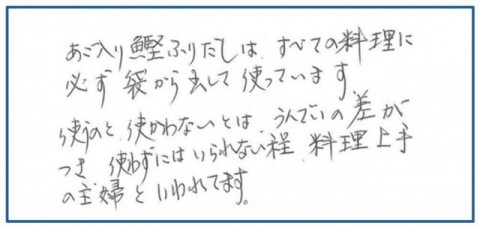 あご入り鰹ふりだしは、すべての料理に
必ず袋から出して使っています
使うのと使かわないとは、うんでいの差が
つき、使わずにはいられない程、料理上手
の主婦といわれてます。